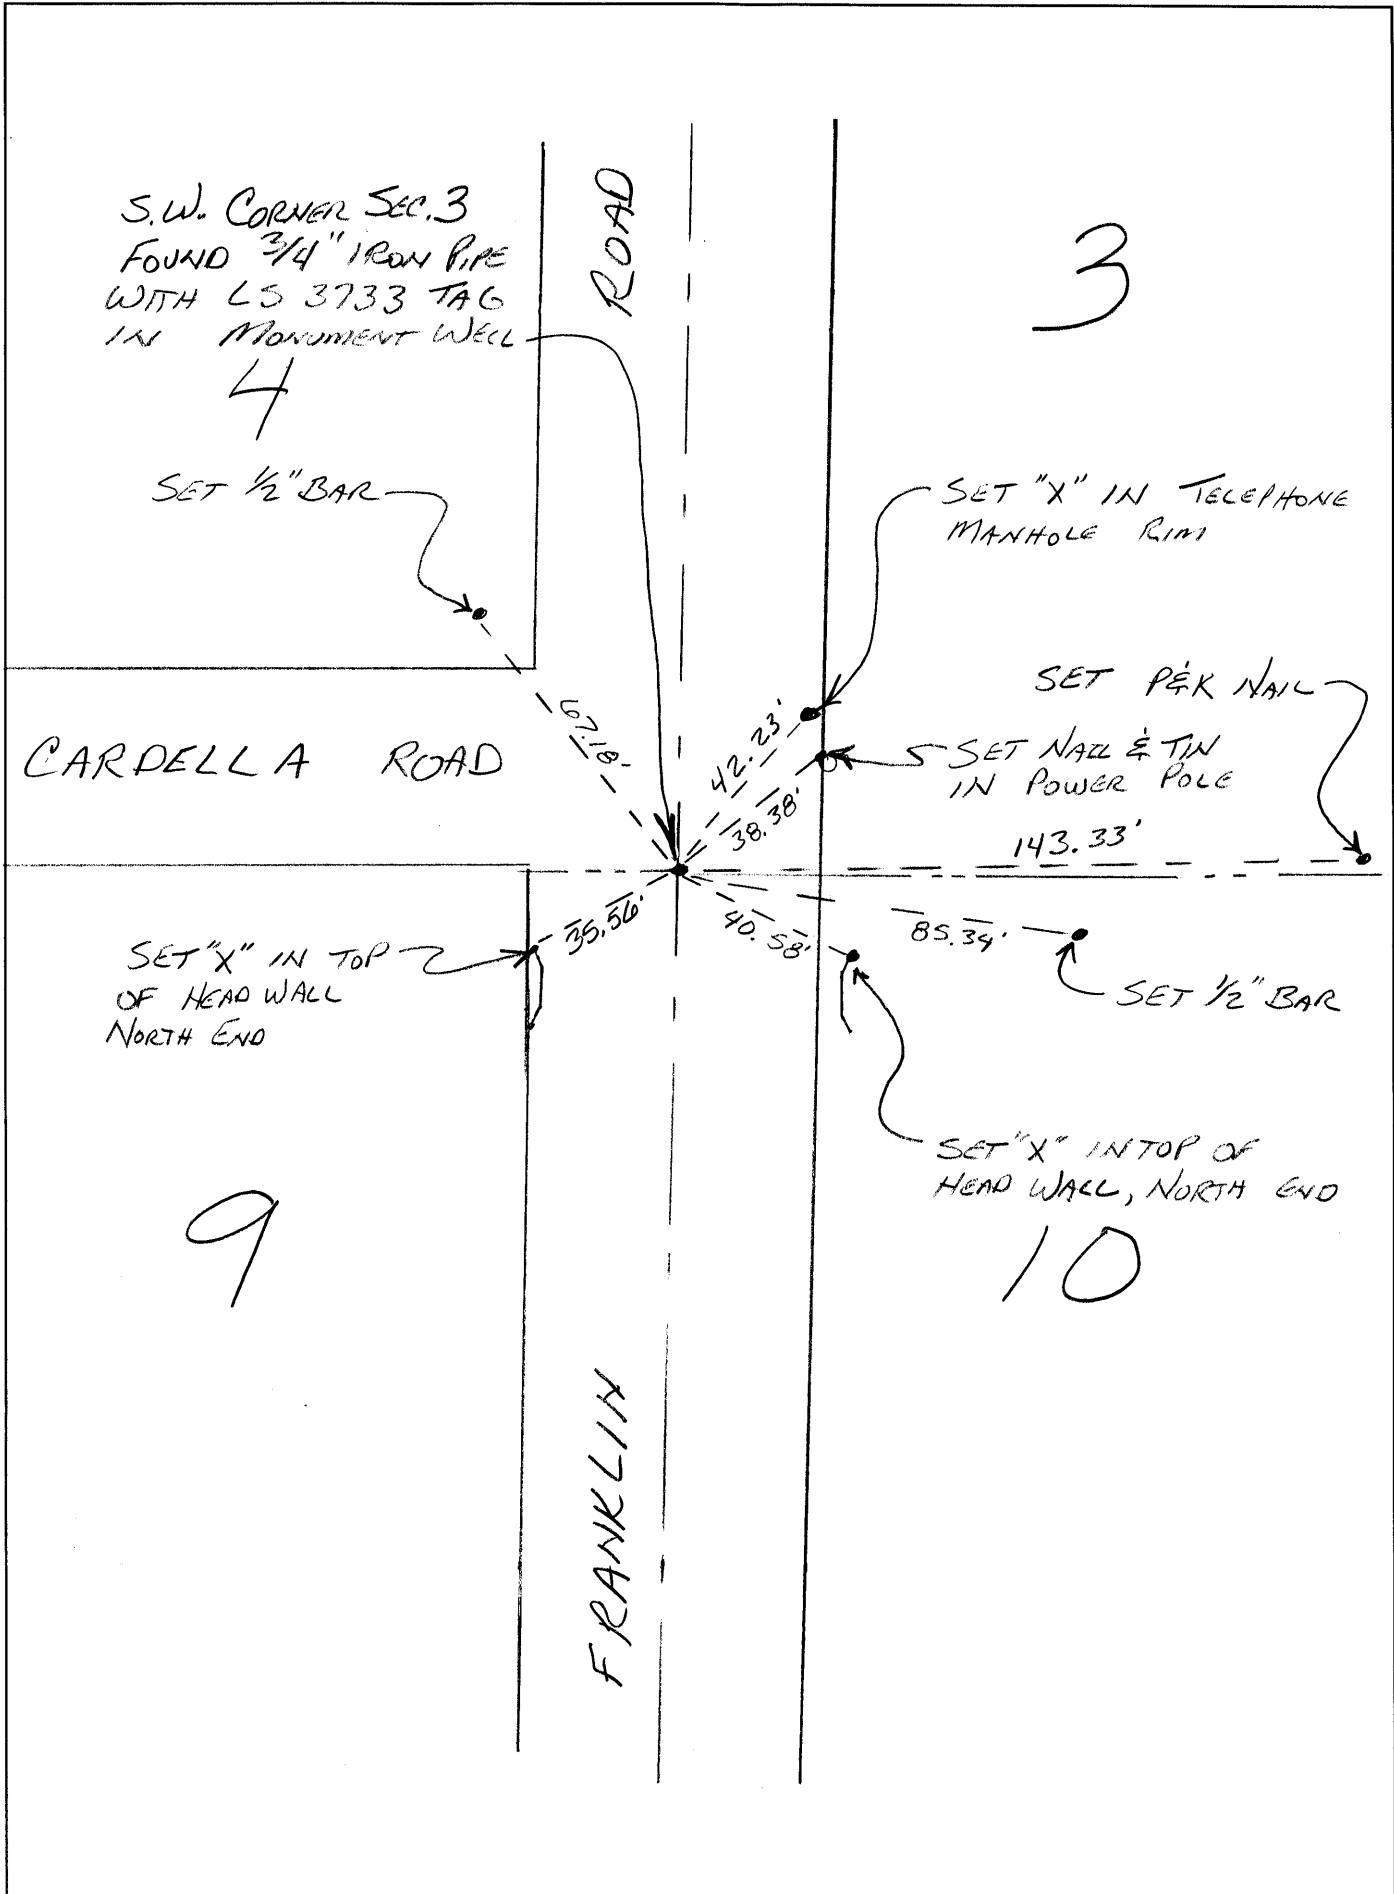 S.W. CORNER SEC. 3
FOUND 3/4" IRON PIPE
WITH LS 3733 TAG
IN MONUMENT WELL
4
ROAD
3
SET 1/2" BAR
SET "X" IN TELEPHONE
MANHOLE RIM
SET P&K NAIL
CARDELLA ROAD
67.18'
42.23'
38.38'
SET NAIL & TIN
IN POWER POLE
143.33'
35.56'
40.58'
85.34'
SET "X" IN TOP
OF HEAD WALL
NORTH END
SET 1/2" BAR
SET "X" IN TOP OF
HEAD WALL, NORTH END
9
10
FRANKLIN